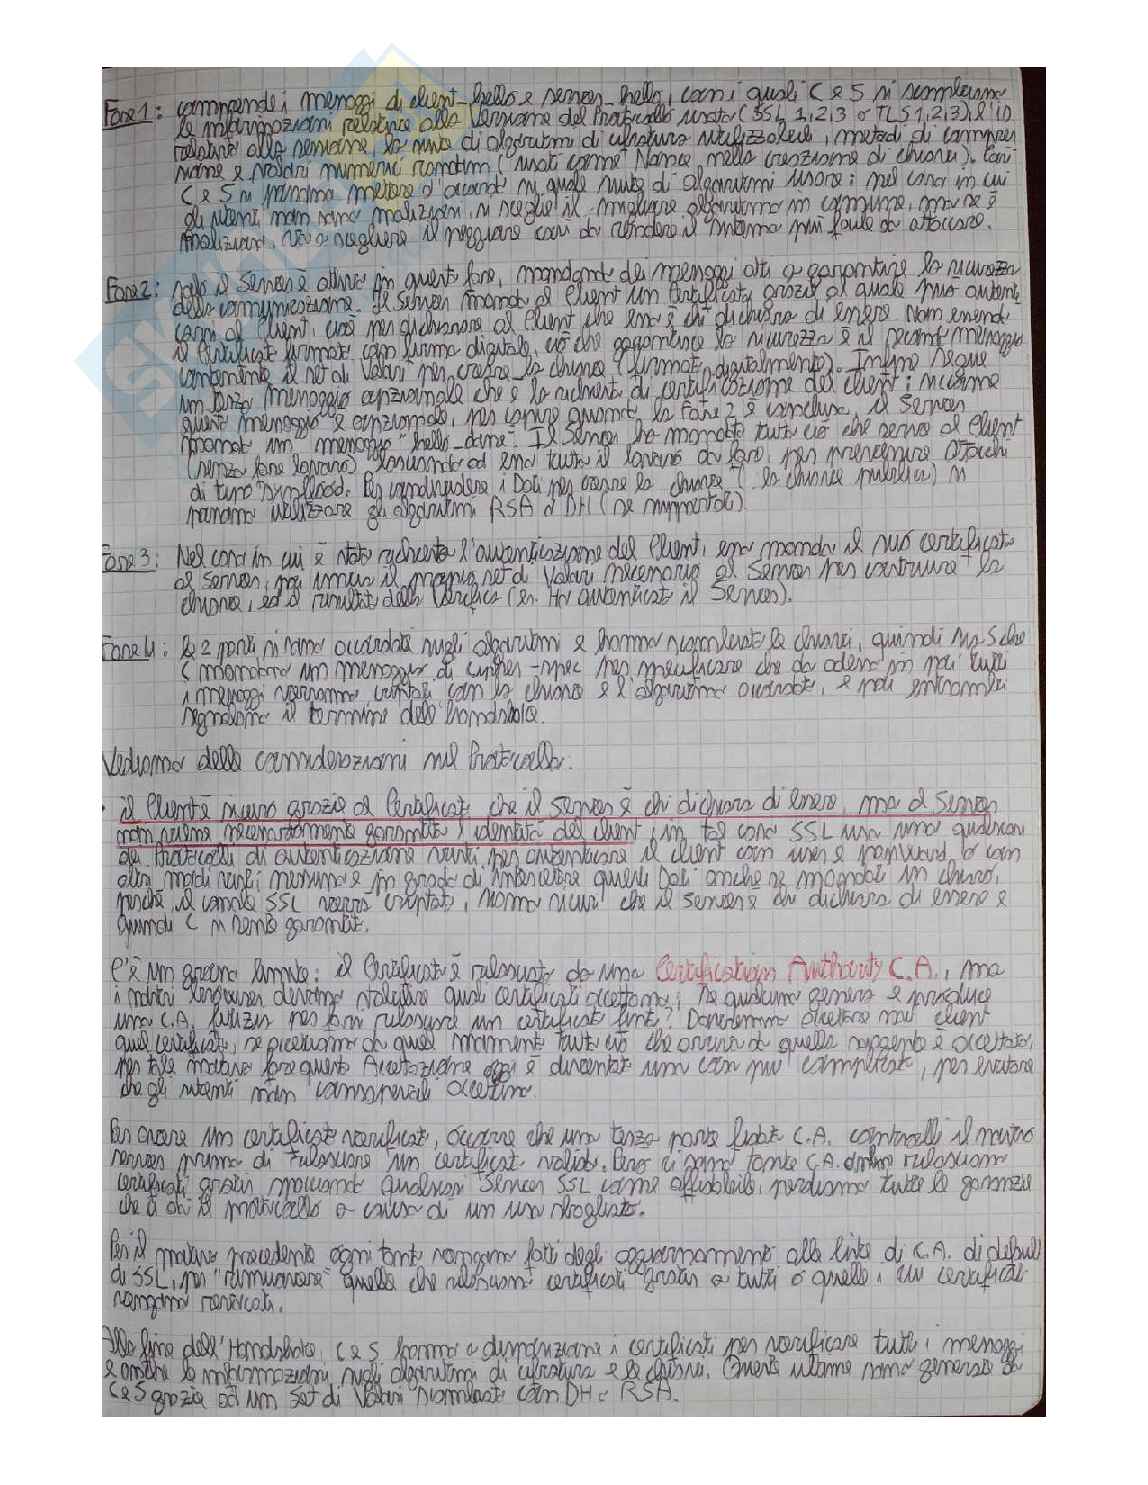 Fase 1: comprende i messaggi di client_hello e server_hello, con i quali C e S si scambiano
le informazioni relative alla Versione del Protocollo usata (SSL 1,2,3 o TLS 1,2,3) e l'ID
relativo alla sessione, la suite di algoritmi di cifratura utilizzabili, metodi di compres
sione e valori numerici random (usati come Nonce nella creazione di chiavi). Così
C e S si possono mettere d'accordo su quale suite di algoritmi usare; nel caso in cui
gli utenti non sono maliziosi, si sceglie il migliore algoritmo in comune, ma se è
malizioso, va a scegliere il peggiore così da rendere il sistema più facile da attaccare.
Fase 2: solo il Server è attivo in questa fase, mandando dei messaggi atti a garantire la sicurezza
della comunicazione. Il Server manda al Client un Certificato grazie al quale può autenti
carsi al Client, così per dichiarare al Client che esso è chi dichiara di essere. Non essendo
il Certificato firmato con firma digitale, ciò che garantisce la sicurezza è il secondo messaggio
contenente il set di Valori per creare la chiave (firmato digitalmente). Infine segue
un terzo messaggio opzionale che è la richiesta di certificazione del client; siccome
questo messaggio è opzionale, per capire quando la Fase 2 è conclusa, il Server
manda un messaggio "hello_done". Il Server ha mandato tutto ciò che serve al Client
(senza fare lavoro) lasciando ad esso tutto il lavoro da fare, per prevenire attacchi
di tipo synflood. Per condividere i Dati per creare la chiave (la chiave pubblica) si
possono utilizzare gli algoritmi RSA o DH (se supportati)
Fase 3: Nel caso in cui è stata richiesta l'autenticazione del Client, esso manda il suo certificato
al server; poi invia il proprio set di Valori necessario al Server per costruire la
chiave, ed il risultato della Verifica (es. Ho autenticato il Server).
Fase 4: le 2 parti si sono accordate sugli algoritmi e hanno scambiato le chiavi, quindi sia S che
C mandano un messaggio di cipher-spec per specificare che da adesso in poi tutti
i messaggi verranno criptati con la chiave e l'algoritmo accordato, e poi entrambi
segnalano il termine dell'handshake.
Vediamo delle considerazioni sul Protocollo:
· il Client è sicuro grazie al Certificato che il Server è chi dichiara di essere, ma al Server
non viene necessariamente garantita l'identità del client; in tal caso SSL usa uno qualsiasi
dei Protocolli di autenticazione visti per autenticare il client con user e password o con
altri modi vari; nessuno è in grado di intercettare questi Dati anche se mandati in chiaro,
perché il canale SSL verrà criptato, siamo sicuri che il server è chi dichiara di essere e
quindi C si sente garantito.
C'è un grosso limite: il Certificato è rilasciato da una Certification Authority C.A., ma
i nostri browser devono stabilire quali certificati accettano; se qualcuno genera e produce
una C.A. fittizia per farsi rilasciare un certificato finto? Dovremmo accettare noi client
quel certificato, se accettiamo da quel momento tutto ciò che arriva da quella sorgente è accettato,
per tale motivo fare questa Accettazione oggi è diventata una cosa più complicata, per evitare
che gli utenti non consapevoli accettino.
Per creare un certificato verificato, occorre che una terza parte fidata C.A. controlli il nostro
server prima di rilasciare un certificato valido. Però ci sono tante C.A. rilasciano
certificati gratis spacciando qualsiasi Server SSL come affidabile, perdiamo tutte le garanzie
che dà il protocollo a causa di un uso sbagliato.
Per il motivo precedente ogni tanto vengono fatti degli aggiornamenti alla lista di C.A. di default
di SSL, per "rimuovere" quelle che rilasciano certificati gratis a tutti o quelle i cui certificati
vengono revocati.
Alla fine dell'Handshake, C e S hanno a disposizione i certificati per verificare tutti i messaggi
e anche le informazioni sugli algoritmi di cifratura e le chiavi. Queste ultime sono generate da
C e S grazie ad un set di Valori scambiato con DH o RSA.